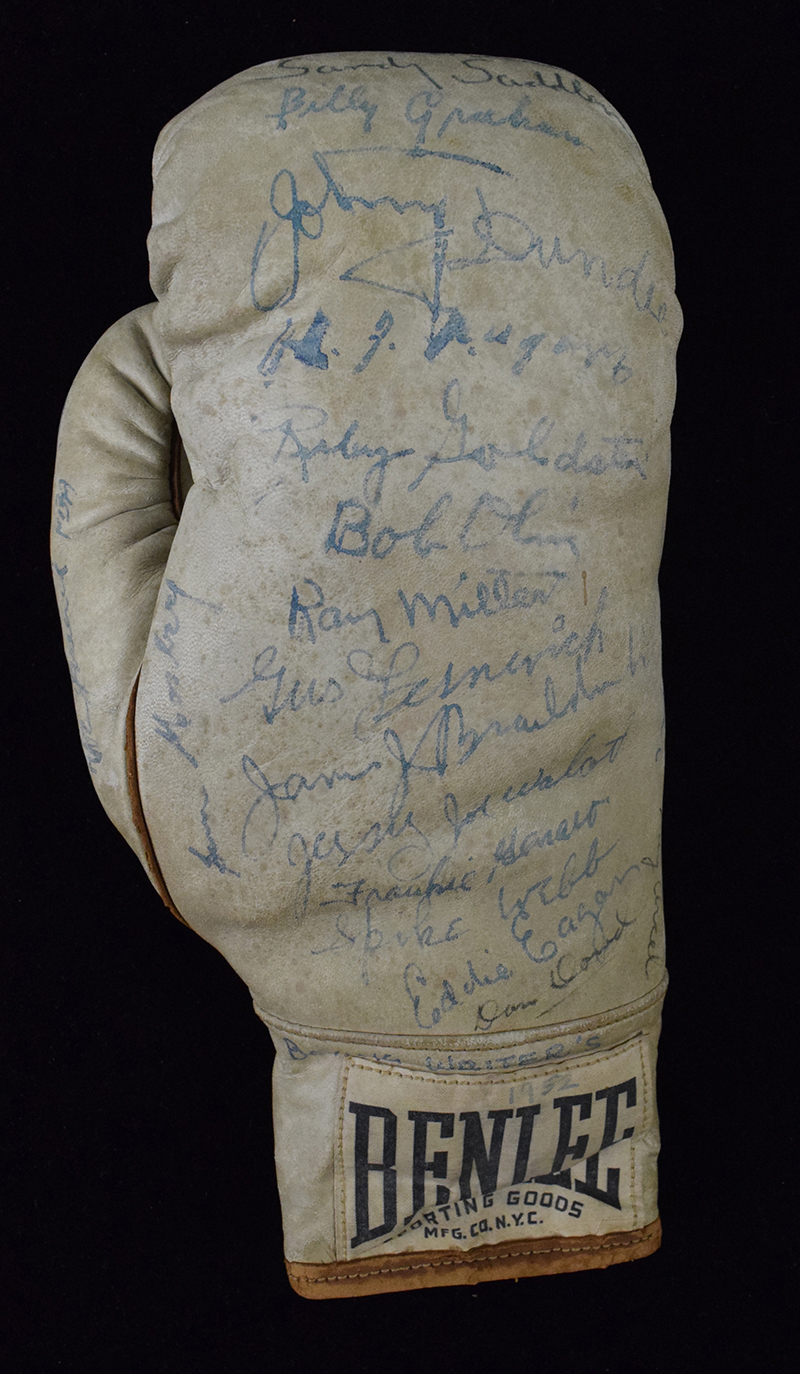 Sandy Saddler
Billy Graham
Johnny Dundee
Ruby Goldstein
Bob Olin
Ray Miller
Gus Lesnevich
James J Braddock
Jersey Joe Walcott
Frankie Genaro
Spike Webb
Eddie Eagan
Dan Dowd
WRITER'S
1952
BENLEE
SPORTING GOODS
MFG. CO. N.Y.C.